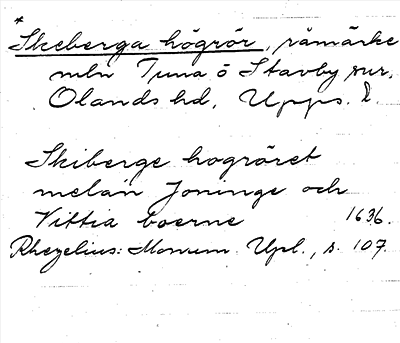 *
Skeberga högrör, råmärke
mln Tuna o Stavby snr,
Olands hd, Upps. l.
Skiberge hogröret
melan Joninge och
Vittra boerne 1636.
Rhezelius: Monum. Upl., s. 107.